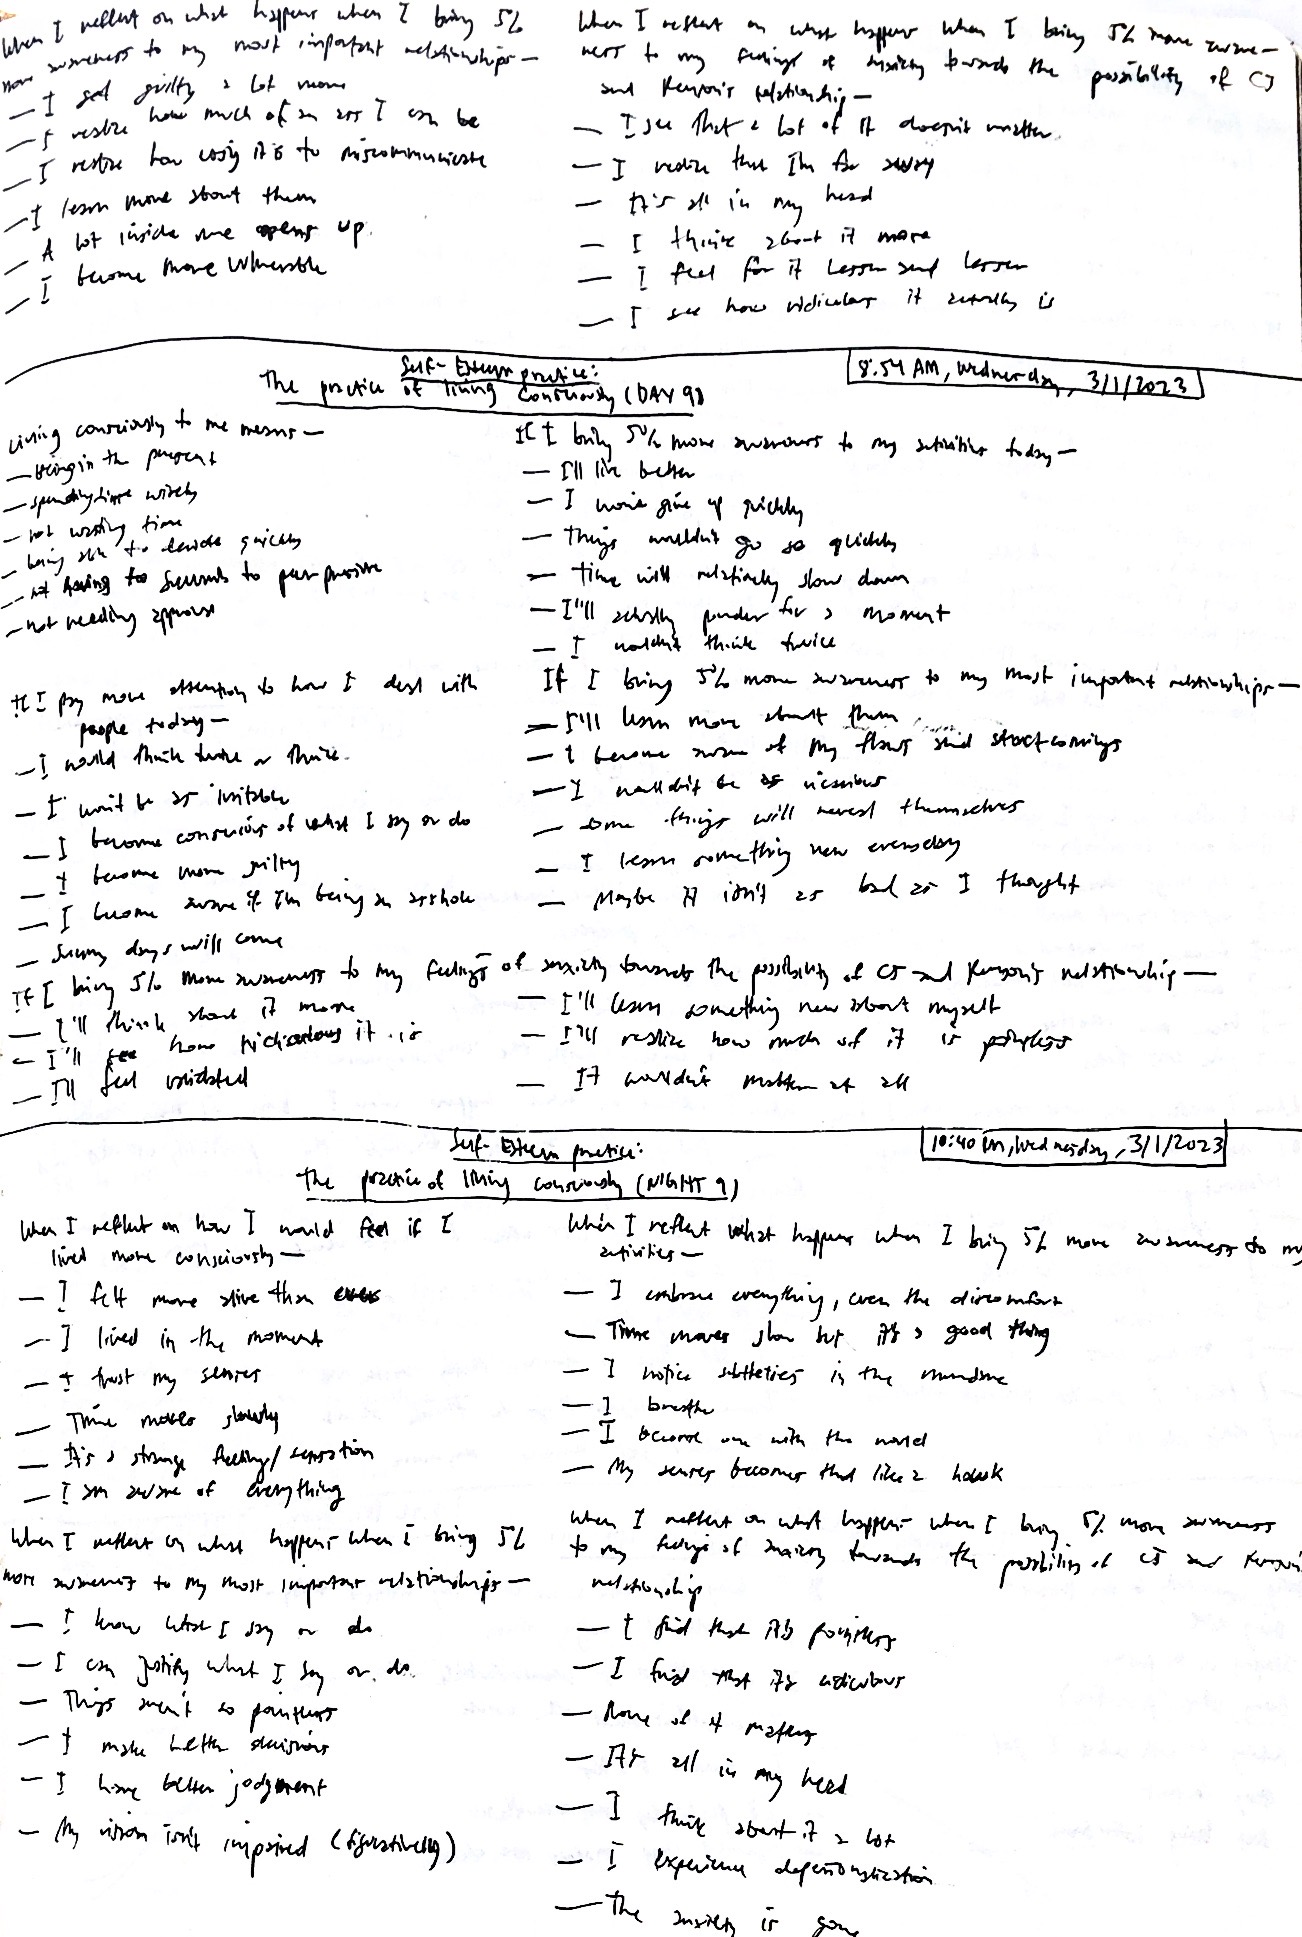 When I reflect on what happens when I bring 5%
more awareness to my most important relationships —
— I get guilty a lot more
— I realize how much of an ass I can be
— I realize how easy it is to miscommunicate
— I learn more about them
— A lot inside me opens up.
— I become more vulnerable
When I reflect on what happens when I bring 5% more aware-
ness to my feelings of anxiety towards the possibility of CJ
and Kenyon's relationship —
— I see that a lot of it doesn't matter
— I realize that I'm far away
— It's all in my head
— I think about it more
— I feel for it lesser and lesser
— I see how ridiculous it actually is
Self-Esteem practice:
The practice of living consciously (DAY 9)
8:54 AM, Wednesday, 3/1/2023
Living consciously to me means —
— Being in the present
— spending time wisely
— not wasting time
— being able to decide quickly
— not having to succumb to peer pressure
— not needing approval
If I bring 5% more awareness to my activities today —
— I'll live better
— I won't give up quickly
— Things wouldn't go so quickly
— Time will relatively slow down
— I'll actually ponder for a moment
— I wouldn't think twice
If I pay more attention to how I deal with
people today —
— I would think twice or thrice.
— I won't be as irritable
— I become conscious of what I say or do
— I become more guilty
— I become aware if I'm being an asshole
— Sunny days will come
If I bring 5% more awareness to my most important relationships —
— I'll learn more about them
— I become aware of my flaws and shortcomings
— I wouldn't be as vicarious
— Some things will reveal themselves
— I learn something new everyday
— Maybe it isn't as bad as I thought
If I bring 5% more awareness to my feelings of anxiety towards the possibility of CJ and Kenyon's relationship —
— I'll think about it more
— I'll see how ridiculous it is
— I'll feel validated
— I'll learn something new about myself
— I'll realize how much of it is pointless
— It wouldn't matter at all
Self-Esteem practice:
The practice of living consciously (NIGHT 9)
10:40 PM, Wednesday, 3/1/2023
When I reflect on how I would feel if I
lived more consciously —
— I felt more alive than ever
— I lived in the moment
— I trust my senses
— Time moves slowly
— It's a strange feeling/sensation
— I am aware of everything
When I reflect what happens when I bring 5% more awareness to my
activities —
— I embrace everything, even the discomfort
— Time moves slow but it's a good thing
— I notice subtleties in the mundane
— I breathe
— I become one with the world
— My senses becomes that like a hawk
When I reflect on what happens when I bring 5%
more awareness to my most important relationships —
— I know what I say or do
— I can justify what I say or do.
— Things aren't so pointless
— I make better decisions
— I have better judgment
— My vision isn't impaired (figuratively)
When I reflect on what happens when I bring 5% more awareness
to my feelings of anxiety towards the possibility of CJ and Kenyon's
relationship
— I find that it's pointless
— I find that it's ridiculous
— None of it matters
— It's all in my head
— I think about it a lot
— I experience depersonalization
— The anxiety is gone